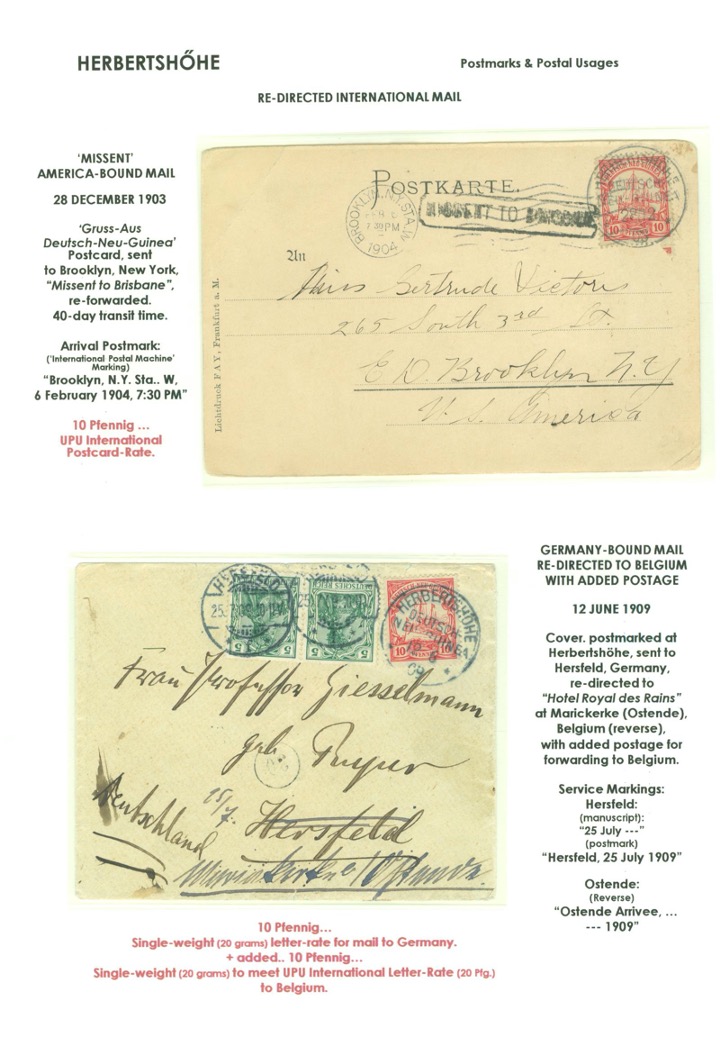 HERBERTSHŐHE
Postmarks & Postal Usages
RE-DIRECTED INTERNATIONAL MAIL
'MISSENT'
AMERICA-BOUND MAIL
28 DECEMBER 1903
'Gruss-Aus
Deutsch-Neu-Guinea'
Postcard, sent
to Brooklyn, New York,
"Missent to Brisbane",
re-forwarded.
40-day transit time.
Arrival Postmark:
('International Postal Machine'
Marking)
"Brooklyn, N.Y. Sta.. W,
6 February 1904, 7:30 PM"
10 Pfennig ...
UPU International
Postcard-Rate.
POSTKARTE.
BROOKLYN, N.Y. STA. W.
7 30 PM
1904
MISSENT TO
10 10
An
Miss Gertrude Victoris
265 South 3rd St.
E. D. Brooklyn N. Y
U. S. America
Lichtdruck FAY, Frankfurt a. M.
GERMANY-BOUND MAIL
RE-DIRECTED TO BELGIUM
WITH ADDED POSTAGE
12 JUNE 1909
Cover. postmarked at
Herbertshöhe, sent to
Hersfeld, Germany,
re-directed to
"Hotel Royal des Rains"
at Marickerke (Ostende),
Belgium (reverse),
with added postage for
forwarding to Belgium.
Service Markings:
Hersfeld:
(manuscript):
"25 July ---"
(postmark)
"Hersfeld, 25 July 1909"
Ostende:
(Reverse)
"Ostende Arrivee, ...
--- 1909"
HERSFELD
5 5
DEUTSCHES REICH
HERBERTSHÖHE
DEUTSCH-
NEU-GUINEA
10 10
Frau Professor Giesselmann
geb.
25/7.
Deutschland
Hersfeld
Ostende.
10 Pfennig...
Single-weight (20 grams) letter-rate for mail to Germany.
+ added.. 10 Pfennig...
Single-weight (20 grams) to meet UPU International Letter-Rate (20 Pfg.)
to Belgium.